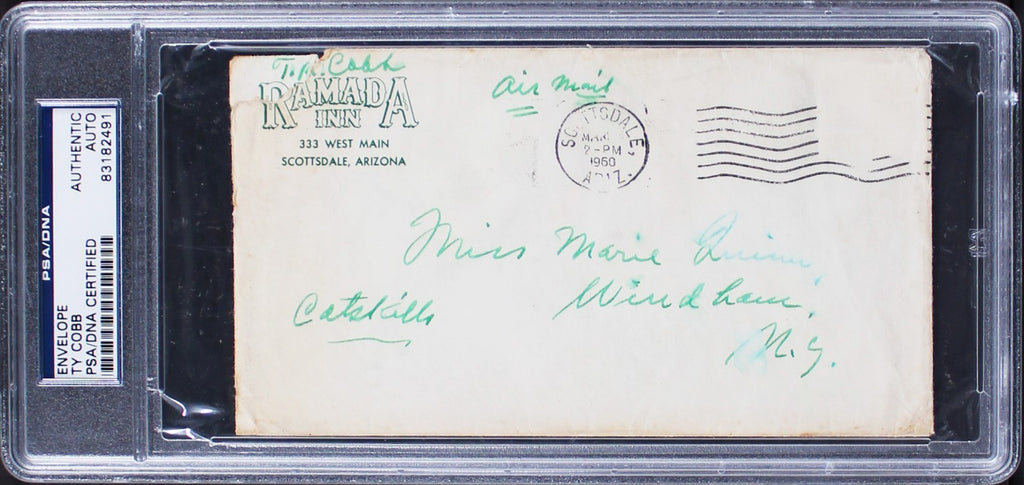 PSA/DNA
ENVELOPE
TY COBB
PSA/DNA CERTIFIED
AUTHENTIC
AUTO
83182491
T.R. Cobb
RAMADA
INN
333 WEST MAIN
SCOTTSDALE, ARIZONA
Air Mail
SCOTTSDALE,
MAR
2-PM
1960
ARIZ.
Miss Marie
Catskills
Windham,
N.Y.